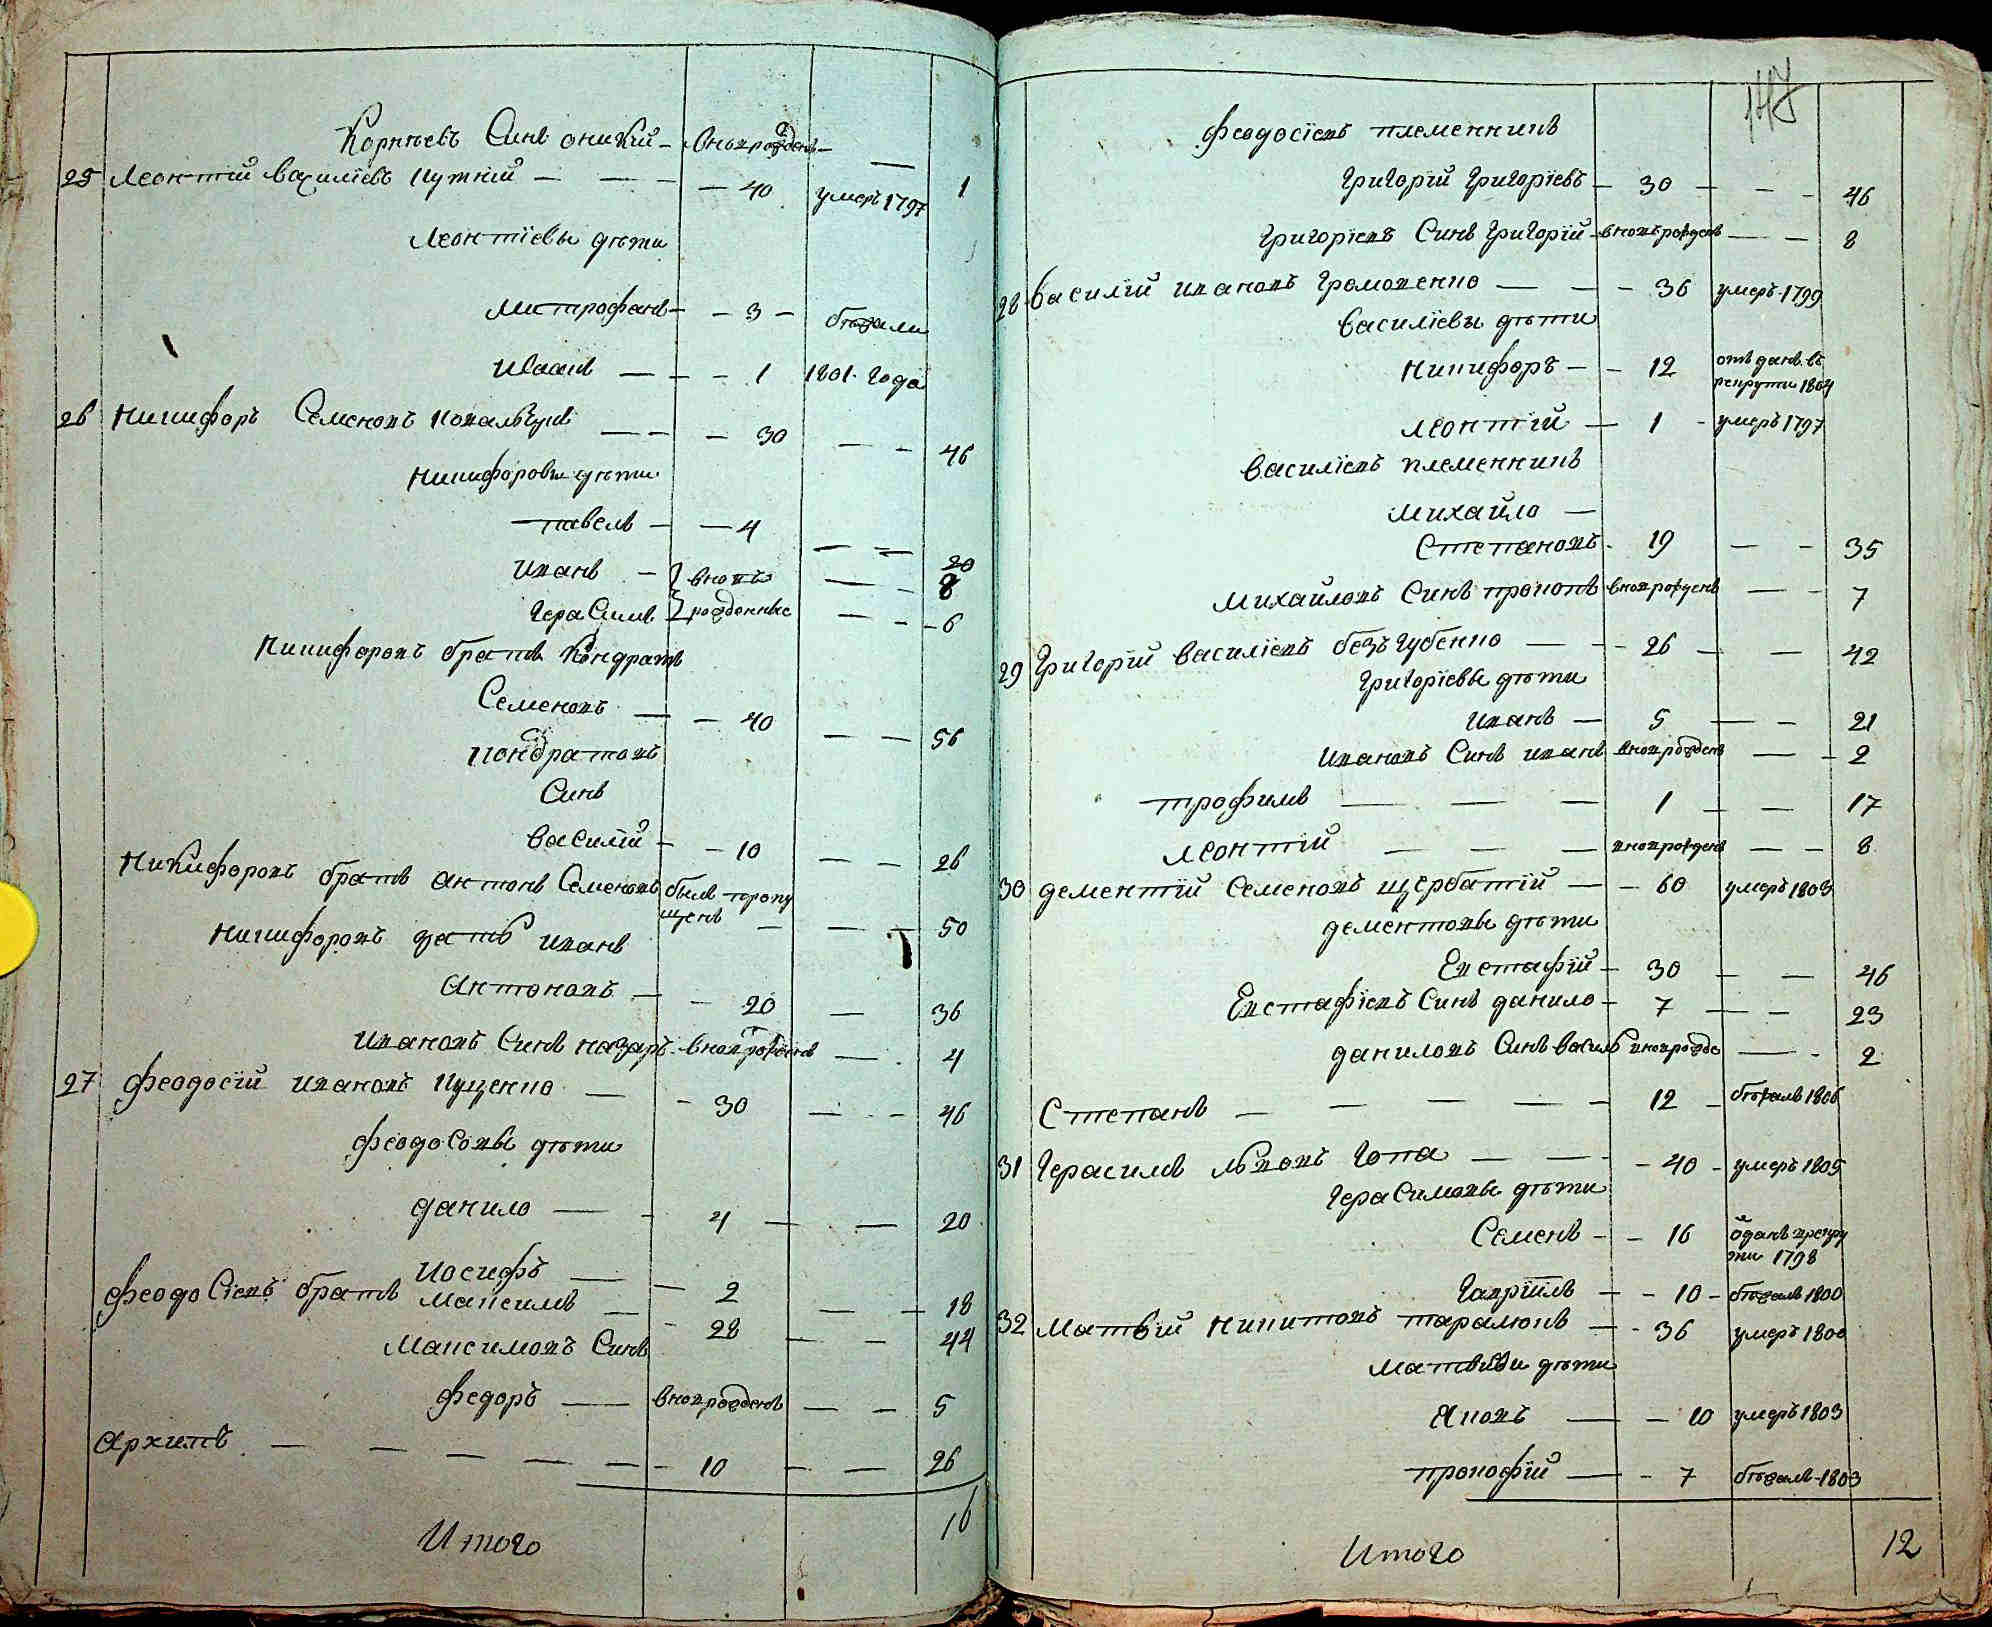 Корнѣевъ Синъ оникий – вновь рожденъ – 1
25 Леонтий василіевъ Цуткий – 40 умеръ 1797
Леонтіевы дѣти
Митрофанъ – 3 – бѣжали
Иванъ – 1 1801. года
26 Никифоръ Семеновъ Ковальчукъ – 30 – 46
Никифоровы дѣти
павелъ – 4 – 20
Иванъ – вновь – 8
ГераСимъ рожденные – 6
Никифоровъ братъ Кондратъ
Семеновъ – 40 – 56
Кондратовъ
Синъ
василій – 10 – 26
Никифоровъ братъ антонъ Семеновъ былъ пропу
щенъ – 50
Никифоровъ зять иванъ
Антоновъ – 20 – 36
Ивановъ Синъ назаръ вновь рожденъ – 4
27 феодосій ивановъ Куценко – 30 – 46
феодоСовы дѣти
данило – 4 – 20
Иосифъ – 2 – 18
феодоСіевъ братъ Максимъ – 28 – 44
Максимовъ Синъ
федоръ – вновь рожденъ – 5
Архипъ – 10 – 26
Итого 16
147
феодосіевъ племенникъ
Григорій Григоріевъ – 30 – 46
Григоріевъ Синъ Григорій – вновь рожденъ – 8
28 василій ивановъ Громовенко – 36 умеръ 1799
василіевы дѣти
никифоръ – 12 отъ данъ въ
рекрути 1804
леонтій – 1 – умеръ 1797
василіевъ племенникъ
михайло –
Степановъ – 19 – 35
Михайловъ Синъ прокопъ вновь рожденъ – 7
29 Григорій василіевъ безъ губенко – 26 – 42
Григоріевы дѣти
иванъ – 5 – 21
ивановъ Синъ иванъ вновь рожденъ – 2
трофимъ – 1 – 17
леонтій – вновь рожденъ – 8
30 дементій Семеновъ щербатій – 60 умеръ 1803
дементовы дѣти
Евстафій – 30 – 46
Евстафіевъ Синъ данило – 7 – 23
даниловъ Синъ василь вновь рожде – 2
Степанъ – 12 – бѣжалъ 1806
31 Герасимъ львовъ Гопа – 40 – умеръ 1805
ГераСимовы дѣти
Семенъ – 16 ѿданъ в рекру
ти 1798
Гавріилъ – 10 – бѣжалъ 1800
32 Матвій Никитовъ таралюкъ – 36 умеръ 1800
Матвіѣви дѣти
Яковъ – 10 умеръ 1803
прокофій – 7 бѣжалъ 1803
Итого 12